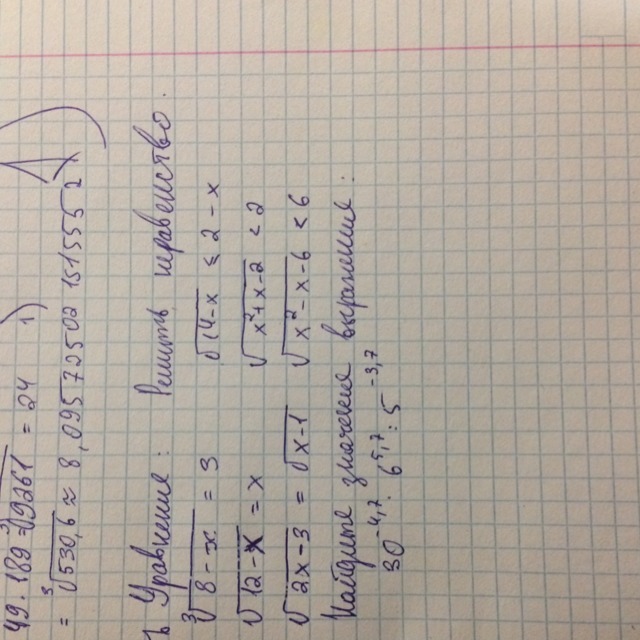 49 · 189 = √9261 = 21 1)
= ³√530,6 ≈ 8,09572502 1515552
ь Уравнение: Решить неравенство.
³√8-x = 3 √14-x ≤ 2-x
√12-x = x √x²+x-2 < 2
√2x-3 = √x-1 √x²-x-6 < 6
Найдите значение выражение:
30^-4,7 · 6^5,7 : 5^-3,7